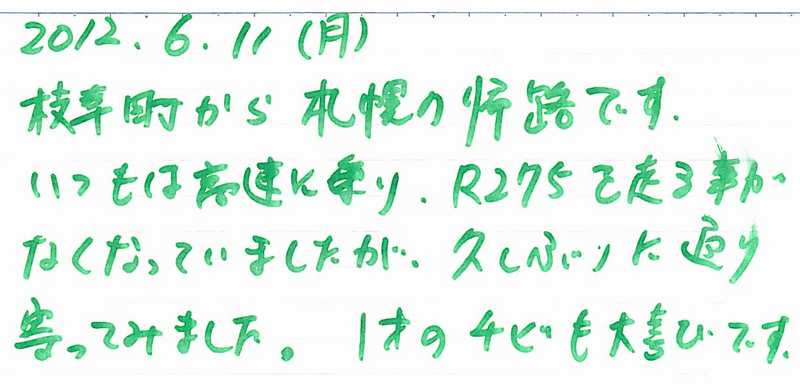 2012.6.11(月)
枝幸町から札幌の帰路です.
いつもは高速に乗り.R275を走る事が
なくなっていましたが、久しぶりに通り
寄ってみました。1才の子どもも大喜びです.